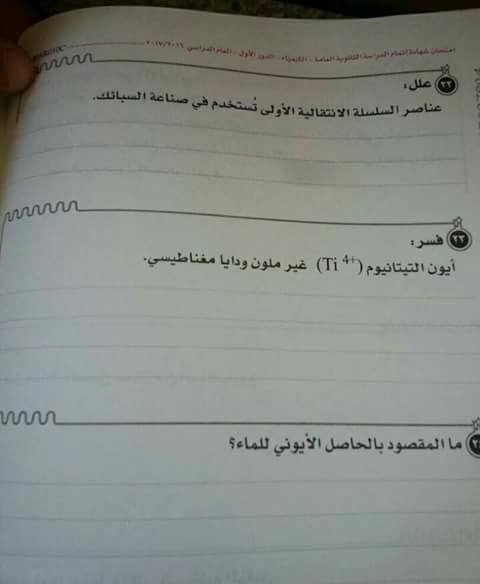 امتحان شهادة إتمام الدراسة الثانوية العامة - الكيمياء - الدور الأول - العام الدراسي ٢٠١٧/٢٠١٦
٢٢ علل:
عناصر السلسلة الانتقالية الأولى تُستخدم في صناعة السبائك.
٢٣ فسر:
أيون التيتانيوم (Ti 4+) غير ملون ودايا مغناطيسي.
ما المقصود بالحاصل الأيوني للماء؟